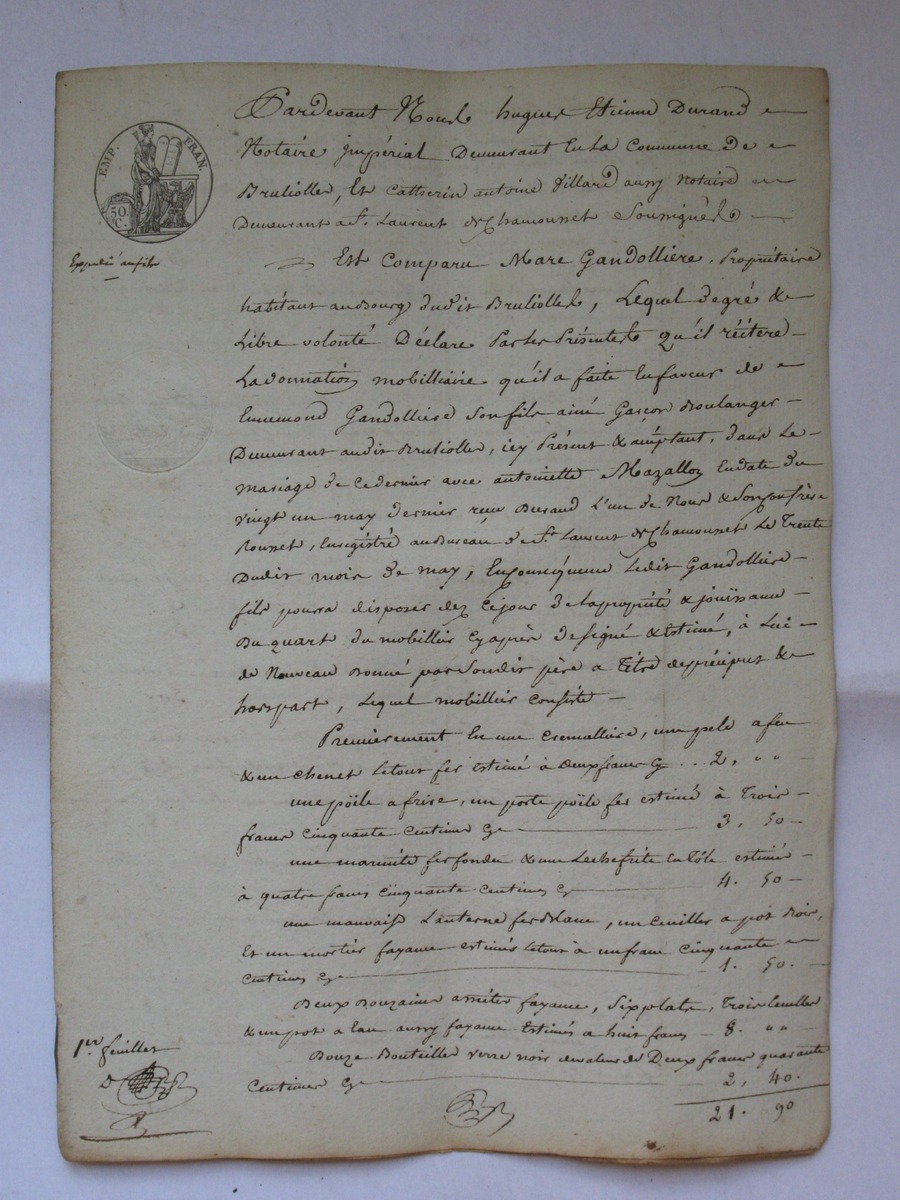 EMP. FRAN.
50. C.
Pardevant Nous hugues Etienne Durand
Notaire impérial Demeurant En la Commune De
Brulioller, Et Catherin antoine Villard aussy Notaire
Demeurant a St. Laurent de Chamousset Soussignés
Expédié au fils
Est Comparu Marc Gandolliere, Propriétaire
habitant au Bourg dudit Bruliolles, Lequel de gré &
Libre volonté Déclare Par Les Présentes qu'il réitere
La donnation mobilliaire qu'il a faite En faveur de
Ennemond Gandolliere Son fils ainé Garçon Boulanger
Demeurant audit Bruliolles, icy Présent & acceptant, dans Le
mariage de Ce dernier avec antoinette Mazallon En date du
vingt un may dernier reçu Durand L'un de Nous & Son Confrère
Rousset, Enregistré au Bureau de St. Laurent de Chamousset Le Trente
Dudit mois de may, En Conséquence Ledit Gandolliere
fils pourra disposer dez Ce jour de La propriété & jouissance
Du quart du mobillier Cy après désigné & Estimé, à Lui
de Nouveau Donné par Son dit père a Titre de préciput &
hors part, Lequel mobillier Consiste
Premièrement En une Cremalliere, une pele a feu
& un Chenet Le tout fer estimé à deux francs Cy 2, " "
une pöile a frire, un porte pöile fer estimé à Trois
francs Cinquante Centimes Cy 3, 50
une marmite fer fondu & une Lechefrite En Tôle estimés
à quatre francs Cinquante Centimes Cy 4. 50
une mauvaise Lanterne fer blanc, un Cuiller a pot Bois,
Et un mortier fayance estimés Le tout à un franc Cinquante
Centimes Cy 1. 50.
Deux Douzaines assiettes fayance, Six plats, Trois
& un pot a Eau aussy fayance Estimés a huit francs 8. " "
Douze Bouteilles verre noir de valeur de Deux francs quarante
Centimes Cy 2, 40.
21. 90
1er feuillet
D